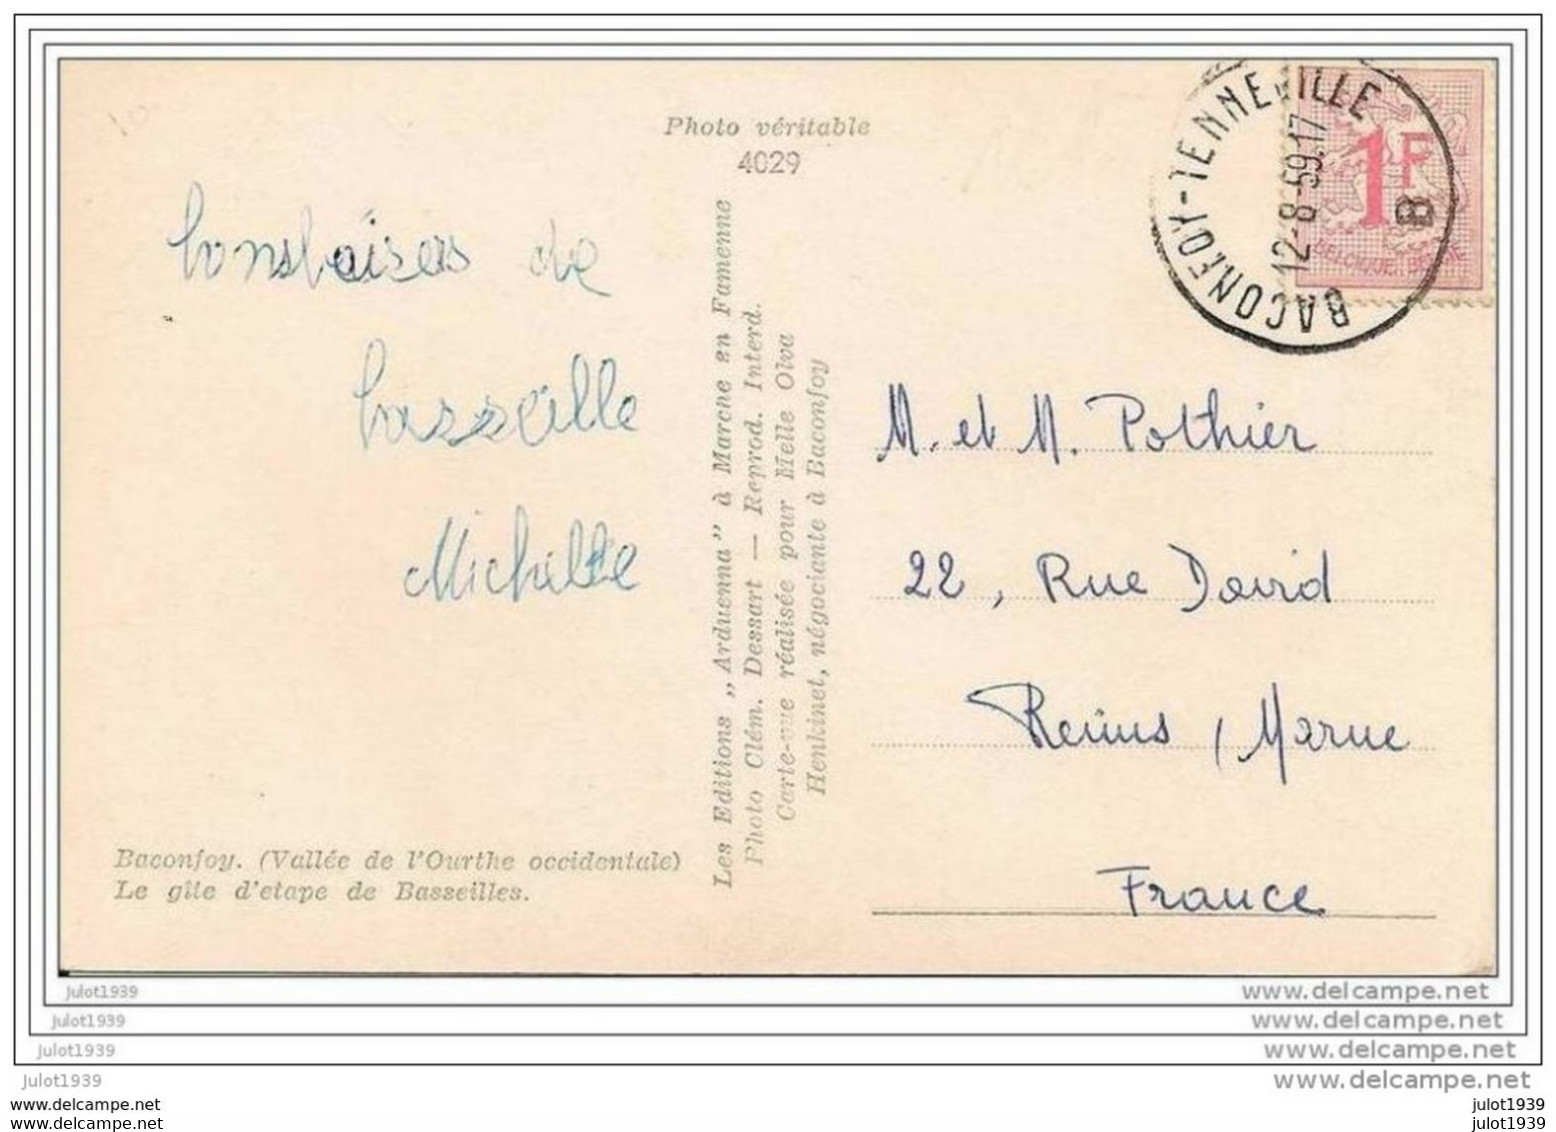 Photo véritable
4029
BACONFOY-TENNEVILLE
12-8-59.17
B
1F
BELGIQUE-BELGIE
de
Michelle
Baconfoy. (Vallée de l'Ourthe occidentale)
Le gîte d'etape de Basseilles.
Les Editions „Arduenna" à Marche en Famenne
Photo Clém. Dessart — Reprod. Interd.
Carte-vue réalisée pour Melle Olva
Henkinet, négociante à Baconfoy
M. et M. Pothier
22, Rue David
Reims, Marne
France
julot1939
www.delcampe.net
julot1939
www.delcampe.net
julot1939
www.delcampe.net
julot1939
www.delcampe.net
www.delcampe.net
julot1939
www.delcampe.net
julot1939